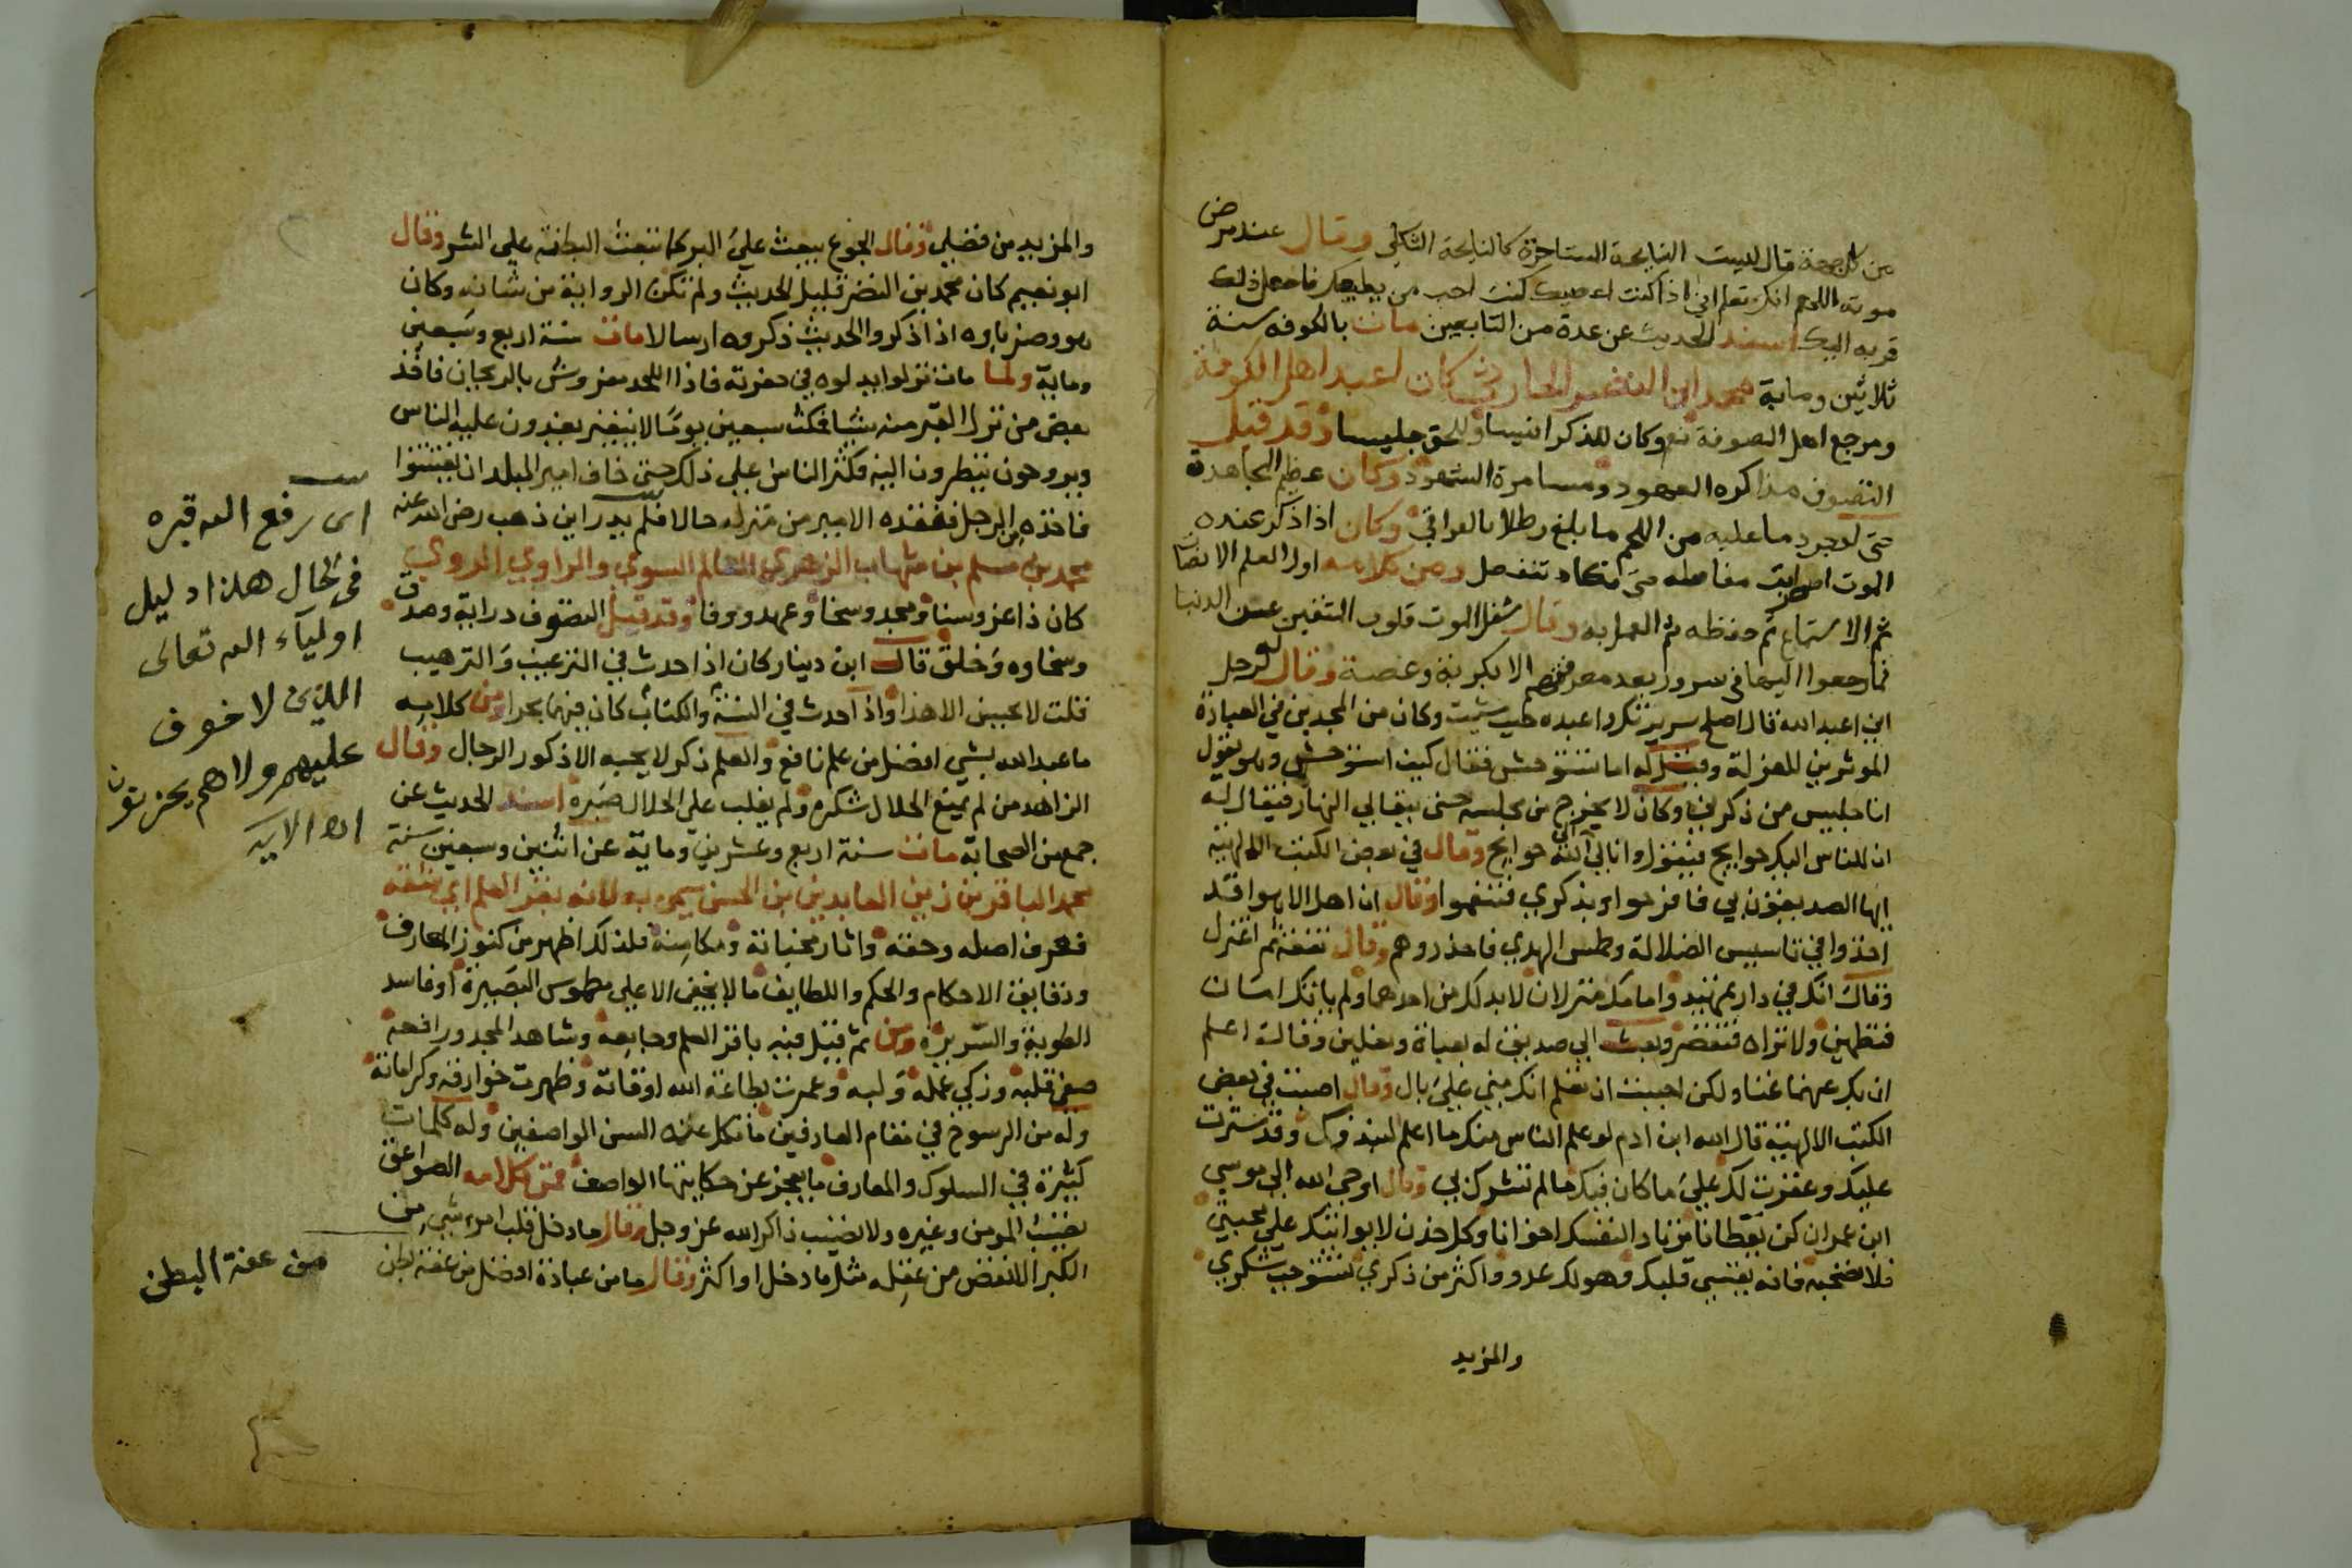 من كل جهة قال ليست النايحة المستاجرة كالنايحة الثكلي وقال عند مرض
موته اللهم انك تعلم اني اذا كنت اعصيك كنت احب من يطيعك فاجعل ذلك
قربه اليك اسند الحديث عن عدة من التابعين مات بالكوفه سنة
ثلاثين وماية محمد ابن النضر الحارثي كان اعبد اهل الكوفة
ومرجع اهل الصوفة وكان للذكر انيسا وللحق جليسا وقد قيل
التصوف مذاكره العهود ومسامرة الشهود وكان عظيم المجاهدة
حتى لوجرد ما عليه من اللحم ما بلغ رطلا بالعراقي وكان اذا ذكر عنده
الموت اضطربت مفاصله حتى تكاد تنفصل ومن كلامه اول العلم الانصات
ثم الاستماع ثم حفظه ثم العمل به وقال شغل الموت قلوب المتقين عن الدنيا
فما رجعوا اليها في سرور بعد معرفتهم الا بكربة وغصة وقال له رجل
اين اعبد الله قال اصلح سريرتك واعبده حيث شيت وكان من المجدين في العبادة
الموثرين للعزلة وقيل له اما تستوحش فقال كيف استوحش وهو يقول
انا جليس من ذكرني وكان لا يخرج من مجلسه حتى يتعالى النهار فيقال له
ان للناس اليك حوايج فيقول وانا لي الى الله حوايج وقال في بعض الكتب الالهية
ايها الصديقون بي فافرحوا وبذكري فتنعموا وقال ان اهل الاهوا قد
اخذوا في تاسيس الضلالة وطمس الهدي فاحذروهم وقال تفقه ثم اعتزل
وقال انك في دار تمهيد وامامك منزلان لابد لك من احدهما ولم ياتك امان
فتطمين ولا براه فتقصر وبعث الى صديق له بعباة ونعلين وقالت اعلم
ان بك عنهما غناء ولكن احببت ان تعلم انك مني علي بال وقال اصبت في بعض
الكتب الالهية قال الله ابن ادم لو علم الناس منك ما اعلم لنبذوك وقد سترت
عليك وغفرت لك علي ما كان فيك ما لم تشرك بي وقال اوحى الله الى موسى
ابن عمران كن يقظانا مرتادا لنفسك اخوانا وكل خدن لا يواتيك علي محبتي
فلا تصحبه فانه يقسي قلبك وهو لك عدو واكثر من ذكري تستوجب شكري
والمزيد
والمزيد من فضلي وقال الجوع يبعث علي البر كما تبعث البطنة علي الشر وقال
ابو نعيم كان محمد بن النضر قليل الحديث ولم تكن الرواية من شانه وكان
هو وضرباوه اذا ذكروا الحديث ذكروه ارسالا مات سنة اربع وسبعين
وماية ولما مات نزلوا ليدلوه في حفرته فاذا اللحد مفروش بالريحان فاخذ
بعض من نزل القبر منه شيا فمكث سبعين يوما لا يتغير يغدون عليه الناس
ويروحون ينظرون اليه فكثر الناس علي ذلك حتى خاف امير البلد ان يفتتنوا
فاخذه من الرجل ففقده الامير من منزله حالا فلم يدر اين ذهب رضي الله عنه
محمد بن مسلم بن شهاب الزهري العالم السوي والراوي الروي
كان ذا عز وسنا ومجد وسخا وعهد ووفا وقد قيل التصوف دراية وصدق
وسخاوه وخلق قال ابن دينار كان اذا حدث في الترغيب والترهيب
قلت لا يحسن الا هذا واذا حدث في السنة والكتاب كان فيهما بحرا ومن كلامه
ما عبد الله بشي افضل من علم نافع والعلم ذكر لا يحبه الا ذكور الرجال وقال
الزاهد من لم يمنع الحلال شكره ولم يغلب علي الحلال صبره اسند الحديث عن
جمع من الصحابة مات سنة اربع وعشرين وماية عن اثنين وسبعين سنة
محمد الباقر بن زين العابدين بن الحسين سمي به لانه بقر العلم اي شقه
فعرف اصله وحفه واثار مخبياته ومكامنه فلذلك اظهر من كنوز المعارف
ودقايق الاحكام والحكم واللطايف ما لا يخفي الا علي مطموس البصيرة او فاسد
الطوية والسريرة ومن ثم قيل فيه باقر العلم وجامعه وشاهد المجد ورافعه
صفي قلبه وزكي عمله ولبه وعمرت بطاعة الله اوقاته وظهرت خوارقه وكراماته
وله من الرسوخ في مقام العارفين ما تكل عنه السن الواصفين وله كلمات
كثيرة في السلوك والمعارف ما يعجز عن حكايتها الواصف فمن كلامه الصواعق
تصيب المومن وغيره ولا تصيب ذاكر الله عز وجل وقال ما دخل قلب امرء شي من
الكبر الا نقص من عقله مثل ما دخل او اكثر وقال ما من عبادة افضل من عفة بطن
اى رفع الله قبره
في الحال هذا دليل
اوليآء الله تعالى
الذين لا خوف
عليهم ولا هم يحزنون
الاية
من عفة البطن